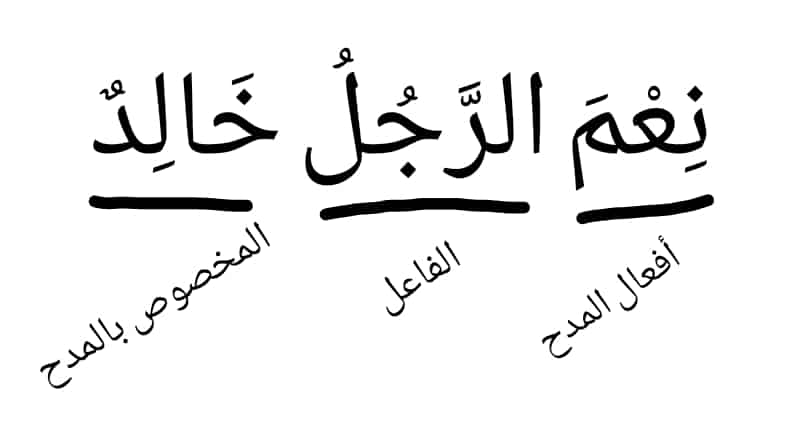 نِعْمَ الرَّجُلُ خَالِدٌ
أفعال المدح
الفاعل
المخصوص بالمدح